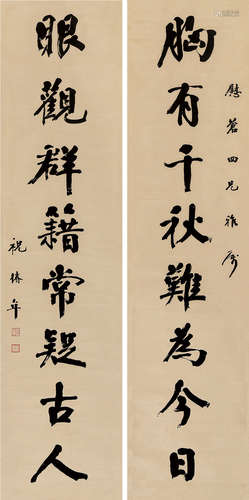 慰蒼四兄雅屬
胸有千秋難為今日
眼觀群籍常疑古人
祝椿年